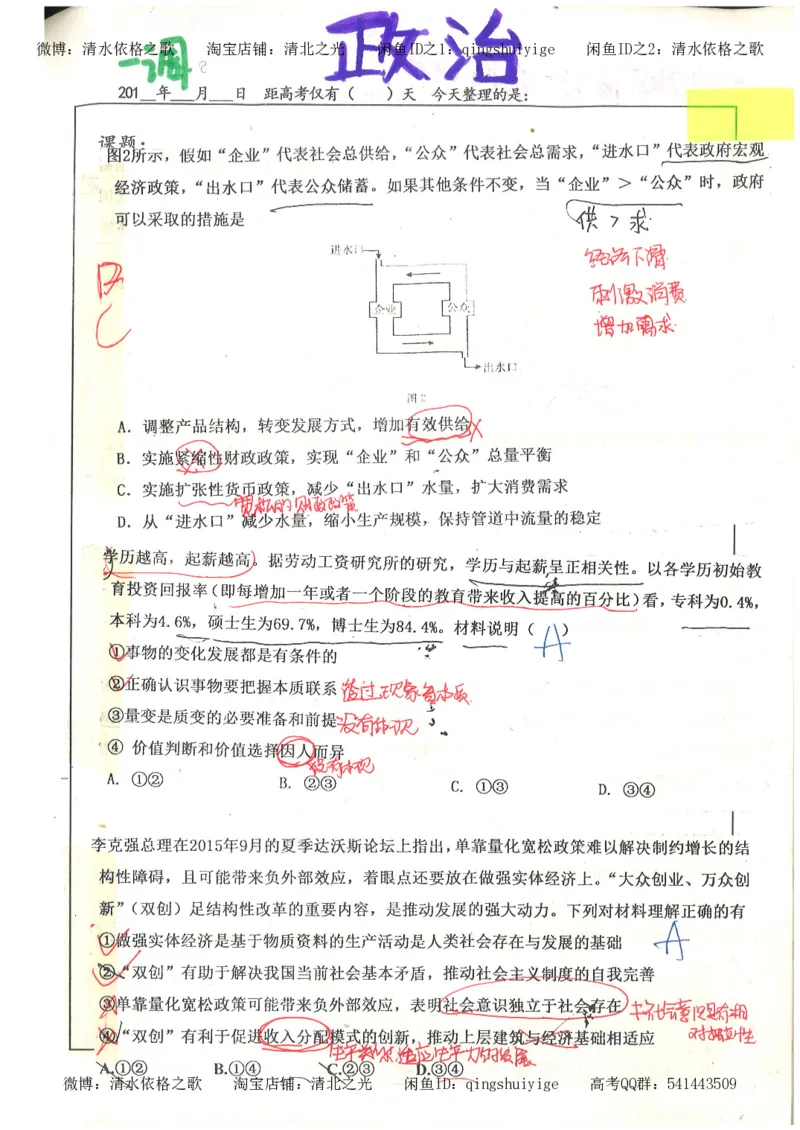 政治
一调
微博：清水依格之歌 淘宝店铺：清北之光 闲鱼ID之1：qingshuiyige 闲鱼ID之2：清水依格之歌
201__年___月___日 距高考仅有（ ）天 今天整理的是：
课题：
图2所示，假如“企业”代表社会总供给，“公众”代表社会总需求，“进水口”代表政府宏观
经济政策，“出水口”代表公众储蓄。如果其他条件不变，当“企业”＞“公众”时，政府
可以采取的措施是
供＞求
经济下滑
刺激消费
增加需求
C
进水口
企业 公众
出水口
图2
A．调整产品结构，转变发展方式，增加有效供给
B．实施紧缩性财政政策，实现“企业”和“公众”总量平衡
C．实施扩张性货币政策，减少“出水口”水量，扩大消费需求
D．从“进水口”减少水量，缩小生产规模，保持管道中流量的稳定
学历越高，起薪越高。据劳动工资研究所的研究，学历与起薪呈正相关性。以各学历初始教
育投资回报率（即每增加一年或者一个阶段的教育带来收入提高的百分比）看，专科为0.4%，
本科为4.6%，硕士生为69.7%，博士生为84.4%。材料说明（ A ）
①事物的变化发展都是有条件的
②正确认识事物要把握本质联系 透过现象看本质
③量变是质变的必要准备和前提 没有体现
④ 价值判断和价值选择因人而异
没有体现
A. ①② B. ②③ C. ①③ D. ③④
李克强总理在2015年9月的夏季达沃斯论坛上指出，单靠量化宽松政策难以解决制约增长的结
构性障碍，且可能带来负外部效应，着眼点还要放在做强实体经济上。“大众创业、万众创
新”（双创）足结构性改革的重要内容，是推动发展的强大动力。下列对材料理解正确的有
A
①做强实体经济是基于物质资料的生产活动是人类社会存在与发展的基础
②“双创”有助于解决我国当前社会基本矛盾，推动社会主义制度的自我完善
③单靠量化宽松政策可能带来负外部效应，表明社会意识独立于社会存在
社会意识具有相
对独立性
④“双创”有利于促进收入分配模式的创新，推动上层建筑与经济基础相适应
A.①② B.①④ C.②③ D.③④
微博：清水依格之歌 淘宝店铺：清北之光 闲鱼ID：qingshuiyige 高考QQ群：541443509